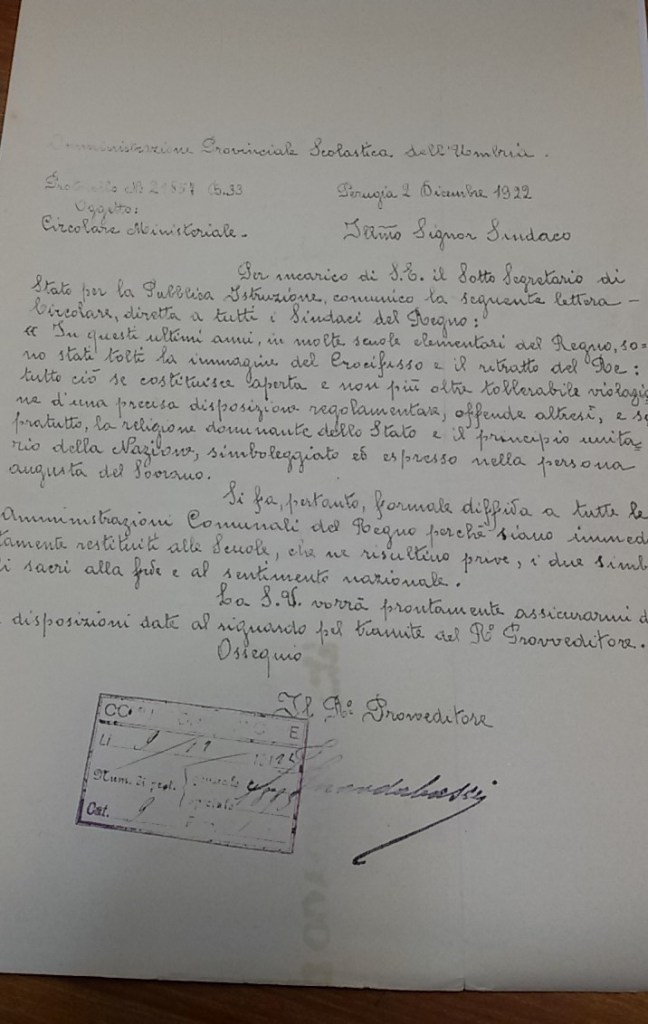 Amministrazione Provinciale Scolastica dell'Umbria.
Protocollo No 21857 B.33
Perugia 2 Dicembre 1922
Oggetto:
Circolare Ministeriale.
Illmo Signor Sindaco
Per incarico di S.E. il Sotto Segretario di
Stato per la Pubblica Istruzione, comunico la seguente lettera -
Circolare, diretta a tutti i Sindaci del Regno:
« In questi ultimi anni, in molte scuole elementari del Regno, so=
no stati tolti la immagine del Crocifisso e il ritratto del Re:
tutto ciò se costituisce aperta e non più oltre tollerabile violazio
ne d'una precisa disposizione regolamentare, offende altresì, e so
pratutto, la religione dominante dello Stato e il principio unita=
rio della Nazione, simboleggiato ed espresso nella persona
augusta del Sovrano.
Si fa, pertanto, formale diffida a tutte le
Amministrazioni Comunali del Regno perchè siano immed
tamente restituiti alle Scuole, che ne risultino prive, i due simb
li sacri alla fede e al sentimento nazionale.
La S.V. vorrà prontamente assicurarmi d
disposizioni date al riguardo pel tramite del Ro Provveditore.
Ossequio
Il Ro Proweditore
CO E
Li 9
Num. di prot. generale
speciale
Cat. 9